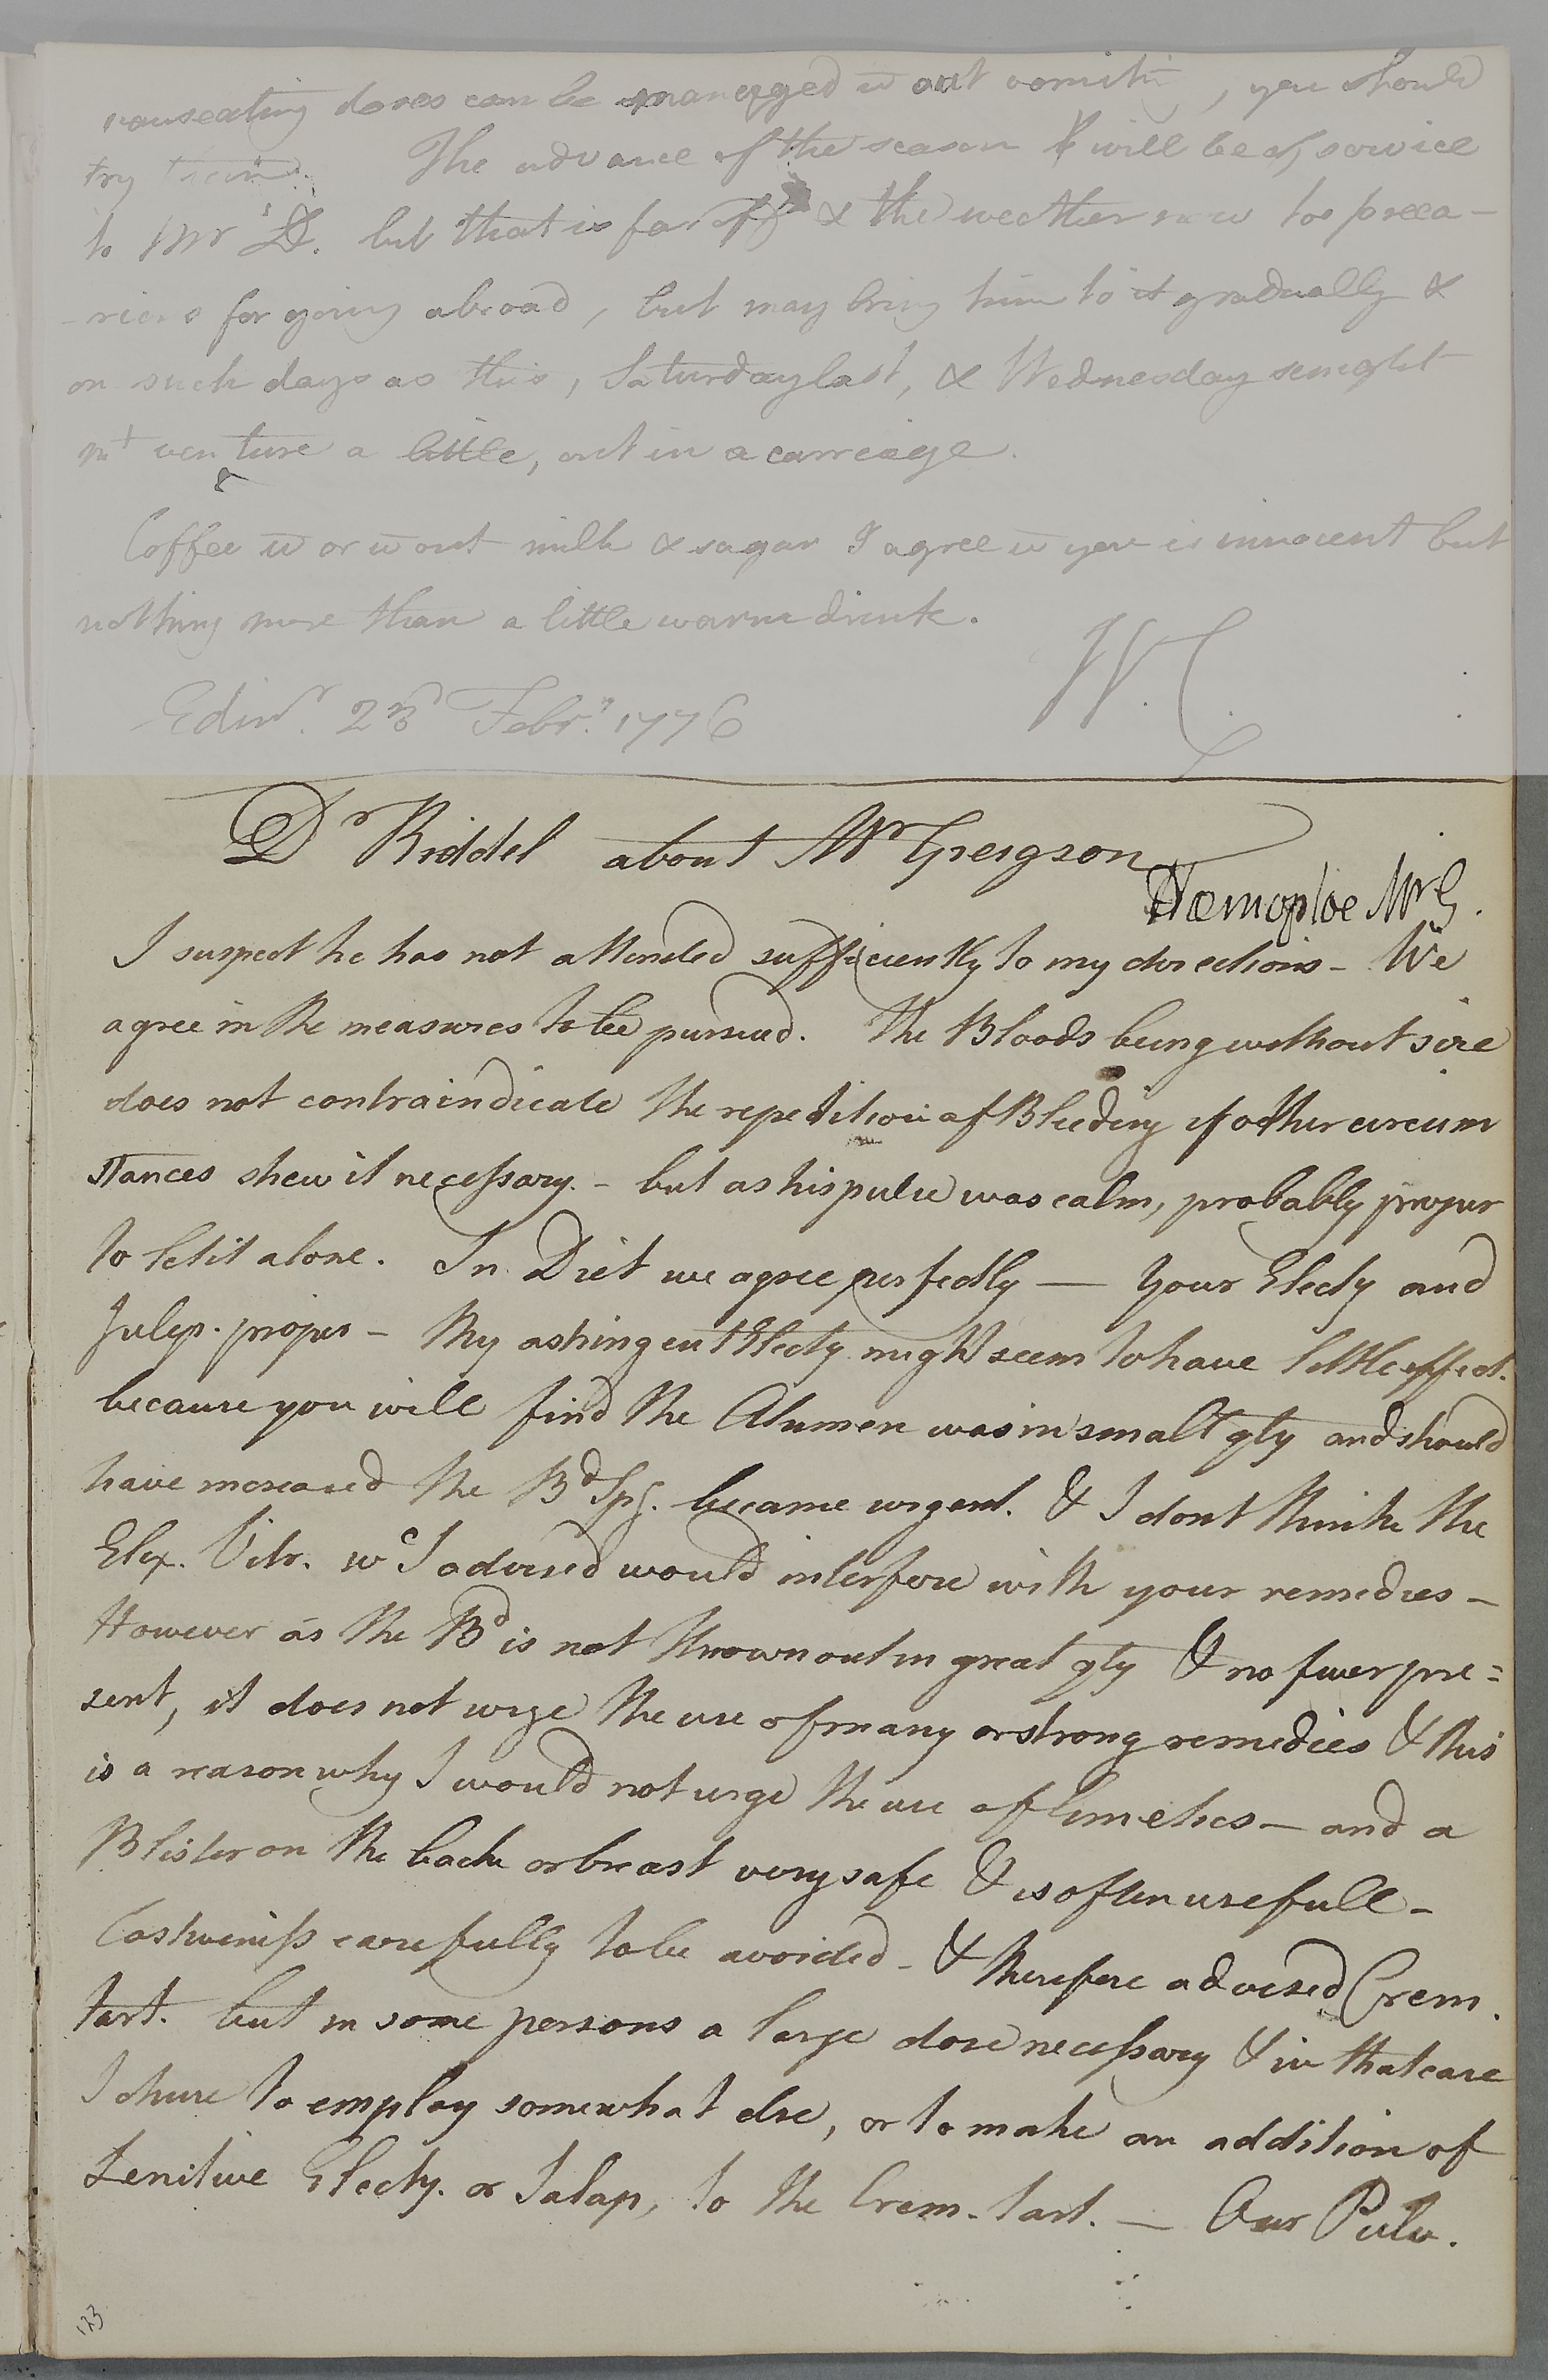 nauseating doses can be managed w out vomitg, you should
try them. The advance of the season will be of service
to Mr D. but that is far off & the weather now too preca-
-rious for going abroad, but may bring him to it gradually &
on such days as this, Saturday last, & Wednesday senight
mt venture a little, out in a carriage.
Coffee w or w out milk & sugar I agree w you is innocent but
nothing more than a little warm drink.
W.C.
Edinr. 23d Febr. 1776
Dr Riddel about Mr Greigson
Hæmoptoe Mr G.
I suspect he has not attended sufficiently to my directions - We
agree in the measures to be pursued. The Bloods being without size
does not contraindicate the repetition of Bleeding if other circum
stances shew it necessary. - but as his pulse was calm, probably proper
to let it alone. In Diet we agree perfectly — Your Electy and
Julep. proper - My astringent Electy. might seem to have little effect.
because you will find the Alumen was in small qty and should
have increased the Bd Spg. became urgent. & I dont think the
Elix. Vitr. wc I advised would interfere with your remedies -
However as the Bd is not thrown out in great qty & no fever pre=
sent, it does not urge the use of many or strong remedies & this
is a reason why I would not urge the use of Emetics — and a
Blister on the back or breast very safe & is often usefull -
Costiveness carefully to be avoided - & therefore advised Crem.
tart. but in some persons a large dose necessary & in that case
I chuse to employ somewhat else, or to make an addition of
Lenitive Electy. or Jalap, to the Crem. tart. — Our Pulv.
173